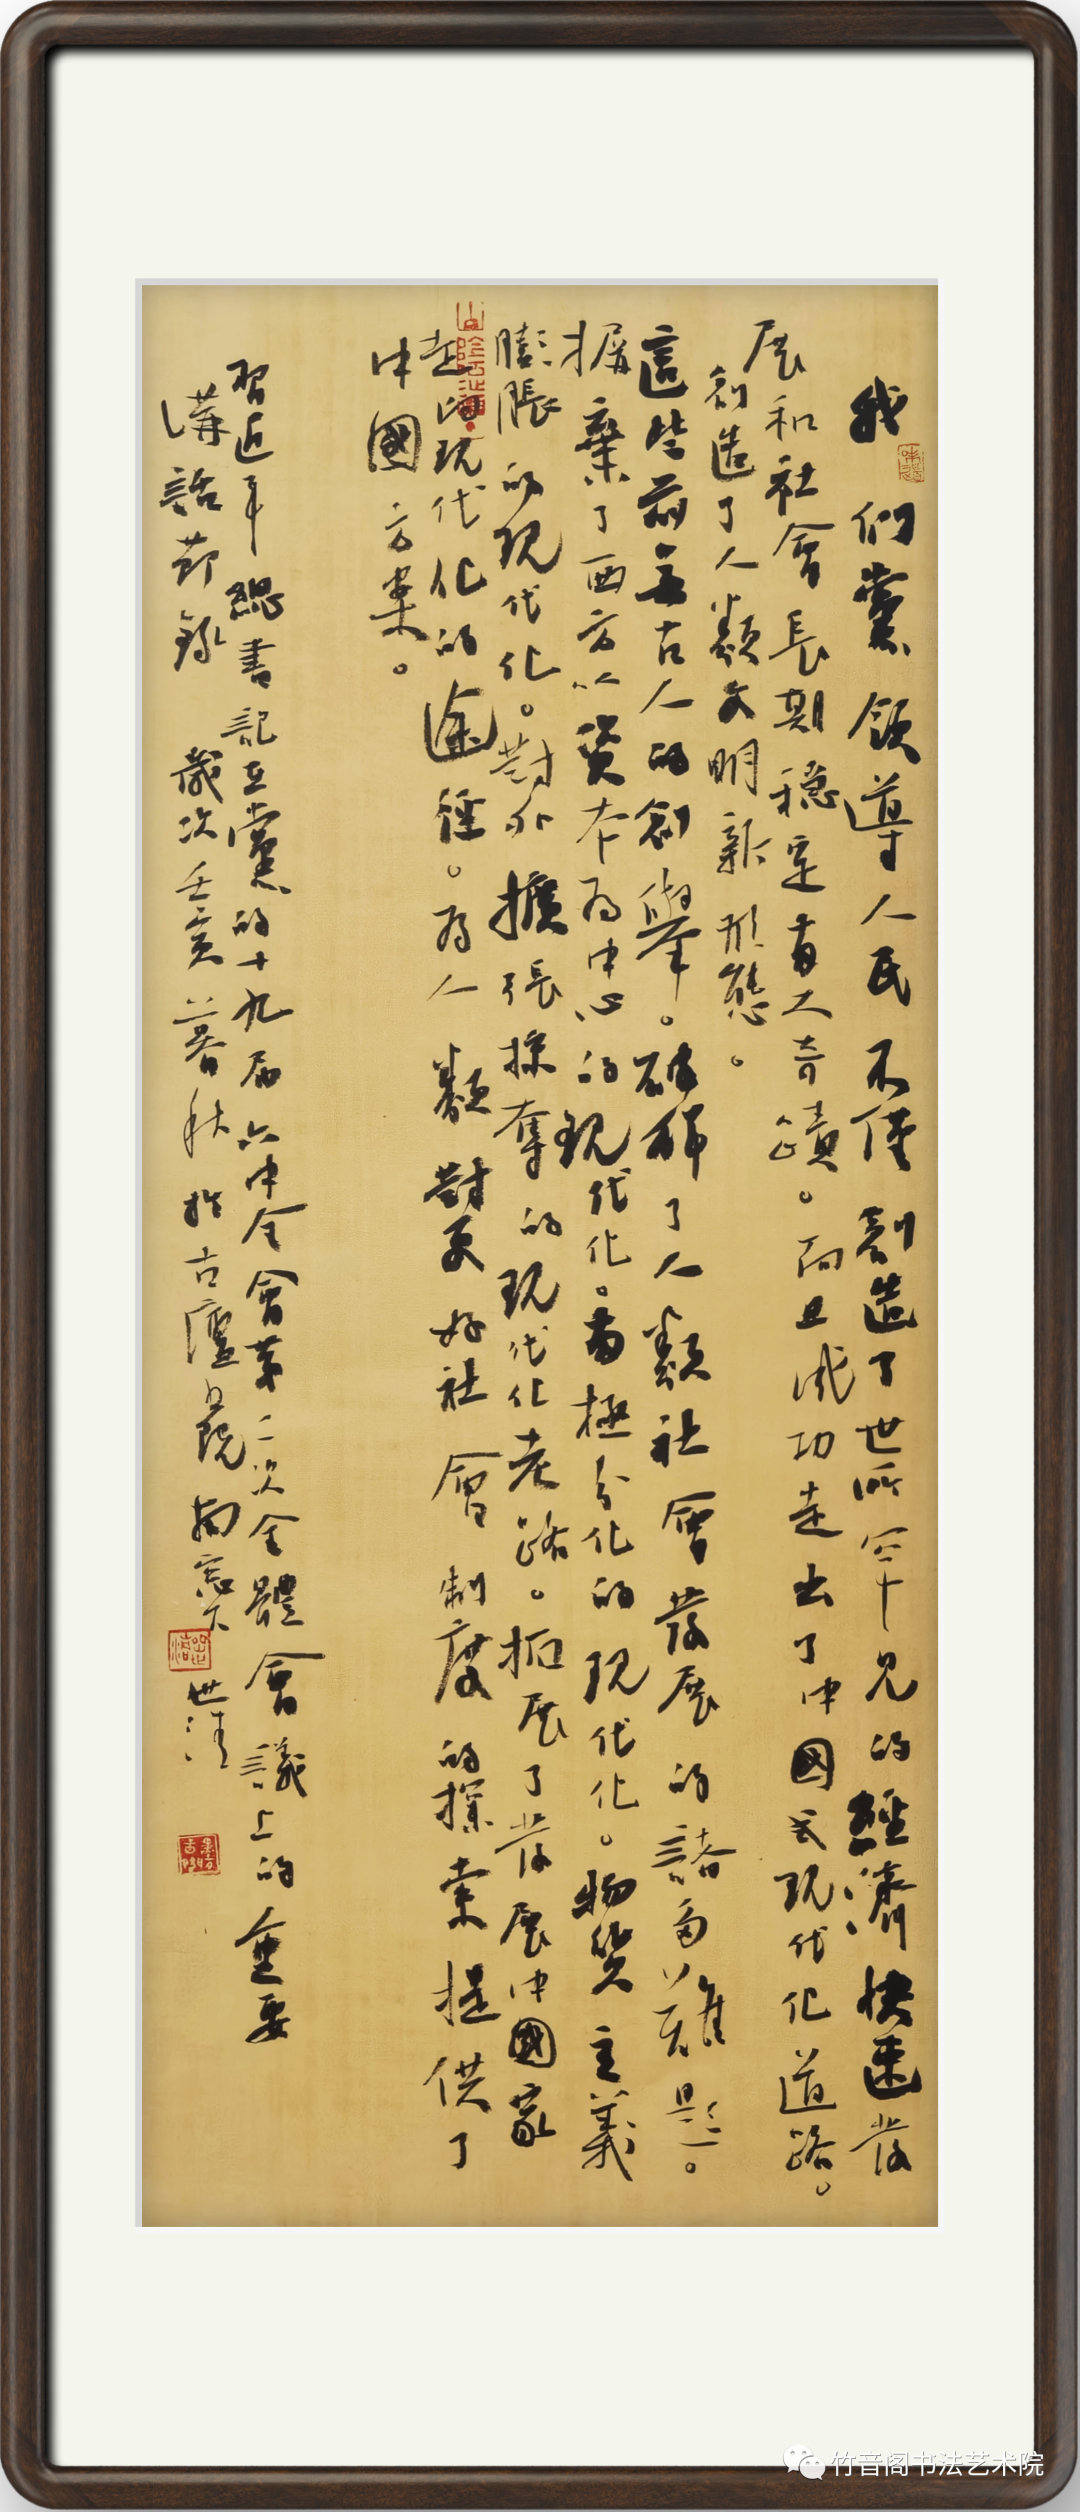 我們黨領導人民不僅創造了世所罕見的經濟快速發
展和社會長期穩定兩大奇蹟。而且成功走出了中國式現代化道路。
創造了人類文明新形態。
這些前無古人的創舉。破解了人類社會發展的諸多難題。
摒棄了西方以資本為中心的現代化。兩極分化的現代化。物質主義
膨脹的現代化。對外擴張掠奪的現代化老路。拓展了發展中國家
走向現代化的途徑。為人類對更好社會制度的探索提供了
中國方案。
習近平總書記在黨的十九屆六中全會第二次全體會議上的重要
講話節錄 歲次壬寅暮秋於古廬書院南窗下 世清
竹音阁书法艺术院